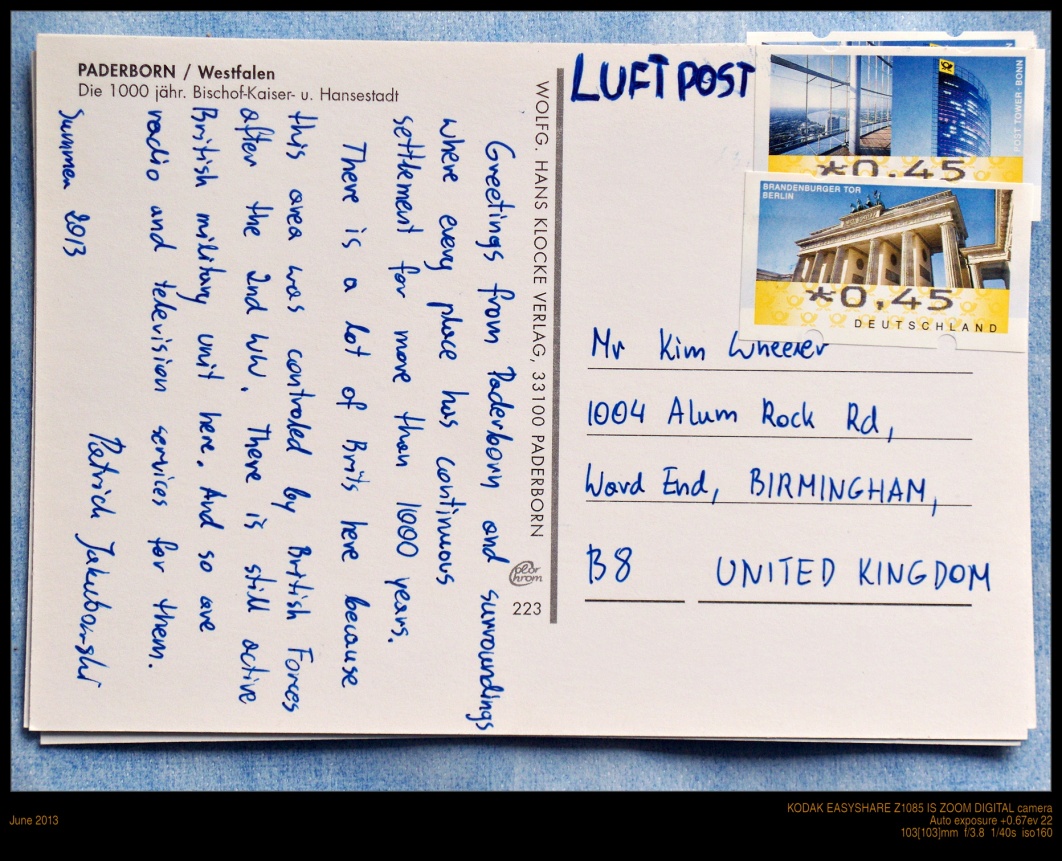 PADERBORN / Westfalen
Die 1000 jähr. Bischof-Kaiser- u. Hansestadt
Greetings from Paderborn and surroundings
where every place has continuous
settlement for more than 1000 years.
There is a lot of Brits here because
this area was controled by British Forces
after the 2nd WW. There is still active
British military unit here. And so are
radio and television services for them.
Summer 2013
Patrick Jakubowski
WOLFG. HANS KLOCKE VERLAG, 33100 PADERBORN
color chrom
223
LUFTPOST
POST TOWER · BONN
*0,45
BRANDENBURGER TOR
BERLIN
*0,45
DEUTSCHLAND
Mr Kim Wheeler
1004 Alum Rock Rd,
Ward End, BIRMINGHAM,
B8 UNITED KINGDOM
June 2013
KODAK EASYSHARE Z1085 IS ZOOM DIGITAL camera
Auto exposure +0.67ev 22
103[103]mm f/3.8 1/40s iso160